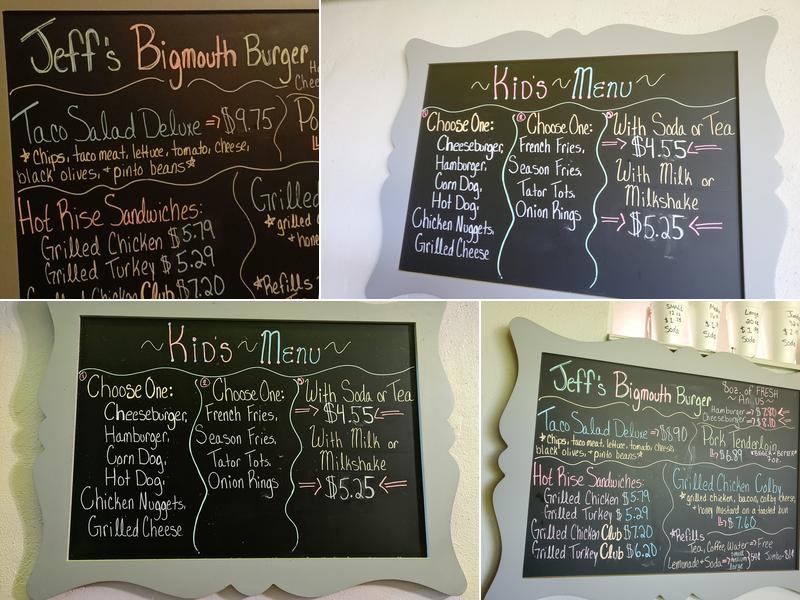 Jeff's Bigmouth Burger
Taco Salad Deluxe ⇒ $9.75
*chips, taco meat, lettuce, tomato, cheese,
black olives, + pinto beans*
Hot Rise Sandwiches:
Grilled Chicken $5.79
Grilled Turkey $5.29
Grilled Chicken Club $7.20
Grilled
*grilled
+ hone
*Refills
~Kid's Menu~
① Choose One:
Cheeseburger,
Hamburger,
Corn Dog,
Hot Dog,
Chicken Nuggets,
Grilled Cheese
② Choose One:
French Fries,
Season Fries,
Tator Tots,
Onion Rings
③ With Soda or Tea
⇒ $4.55 ⇐
With Milk or
Milkshake
⇒ $5.25 ⇐
~Kid's Menu~
① Choose One:
Cheeseburger,
Hamburger,
Corn Dog,
Hot Dog,
Chicken Nuggets,
Grilled Cheese
② Choose One:
French Fries,
Season Fries,
Tator Tots,
Onion Rings
③ With Soda or Tea
⇒ $4.55 ⇐
With Milk or
Milkshake
⇒ $5.25 ⇐
Small
Soda
Soda
Large
Soda
Soda
Jeff's Bigmouth Burger
8oz. of FRESH
Hamburger ⇒ $7.80 ⇐
Cheeseburger ⇒ $8.10 ⇐
Taco Salad Deluxe ⇒ $8.90
*chips, taco meat, lettuce, tomato, cheese,
black olives, + pinto beans*
Pork Tenderloin
$6.89
*BIGGER + BETTER*
7oz.
Hot Rise Sandwiches:
Grilled Chicken $5.79
Grilled Turkey $5.29
Grilled Chicken Club $7.20
Grilled Turkey Club $6.20
Grilled Chicken Colby
*grilled chicken, bacon, colby cheese,
+ honey mustard on a toasted bun
$7.60
*Refills
Tea, Coffee, Water ⇒ Free
Lemonade + Soda ⇒ small medium large 50¢ Jumbo-81¢